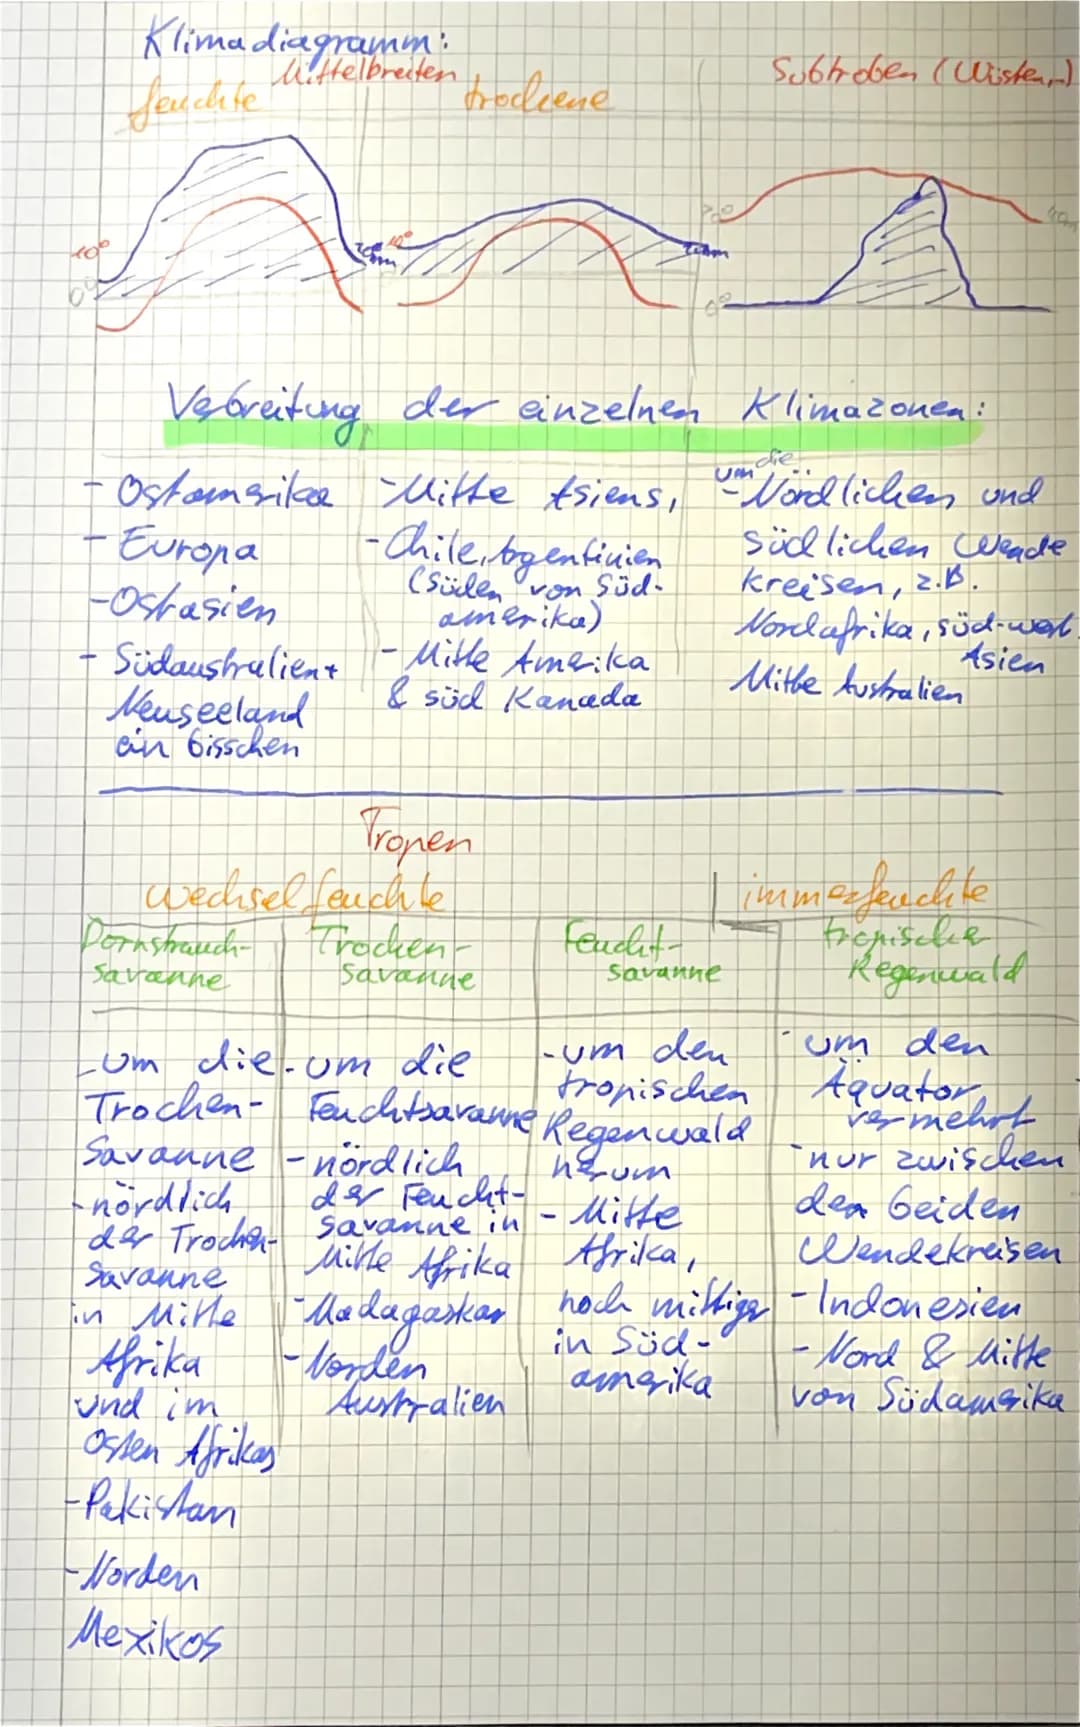 Klimadiagramm:
Mittelbreiten
Subtroben (Wüsten,..)
feuchte
trockene
10°
0°
10°
20°
0°
Vebreitung der einzelnen Klimazonen:
- Ostamerika
- Europa
- Ostasien
- Südaustralien +
Neuseeland
ein bisschen
- Mitte Asiens,
- Chile, Argentinien
(Süden von Süd-
amerika)
- Mitte Amerika
& süd Kanada
um die
- Nördlichen und
südlichen Wende
kreisen, z.B.
Nordafrika, süd-west
Asien
Mitte Australien
Tropen
wechselfeuchte
immerfeuchte
Dornstrauch-
savanne
Trocken-
savanne
Feucht-
savanne
tropischer
Regenwald
- um die
Trocken-
Savanne
- nördlich
der Trocken-
savanne
in Mitte
Afrika
und im
Osten Afrikas
- Pakistan
- Norden
Mexikos
- um die
Feuchtsavanne
- nördlich
der Feucht-
savanne in
Mitte Afrika
- Madagaskar
- Norden
Australien
- um den
tropischen
Regenwald
herum
- Mitte
Afrika,
noch mittiger
in Süd-
amerika
- um den
Äquator
vermehrt
- nur zwischen
den beiden
Wendekreisen
- Indonesien
- Nord & Mitte
von Südamerika